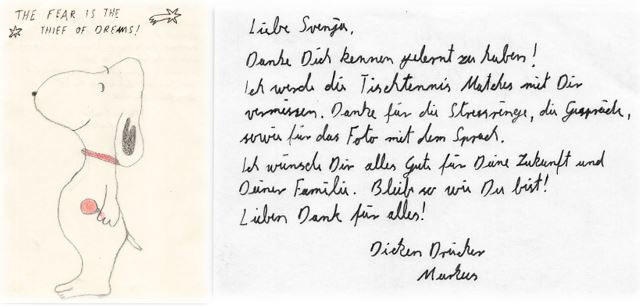 THE FEAR IS THE
THIEF OF DREAMS!
Liebe Svenja,
Danke Dich kennen gelernt zu haben!
Ich werde die Tischtennis Matches mit Dir
vermissen. Danke für die Stressringe, die Gespräche,
sowie für das Foto mit dem Spruch.
Ich wünsche Dir alles Gute für Deine Zukunft und
Deiner Familie. Bleib so wie Du bist!
Lieben Dank für alles!
Dicken Drücker
Markus